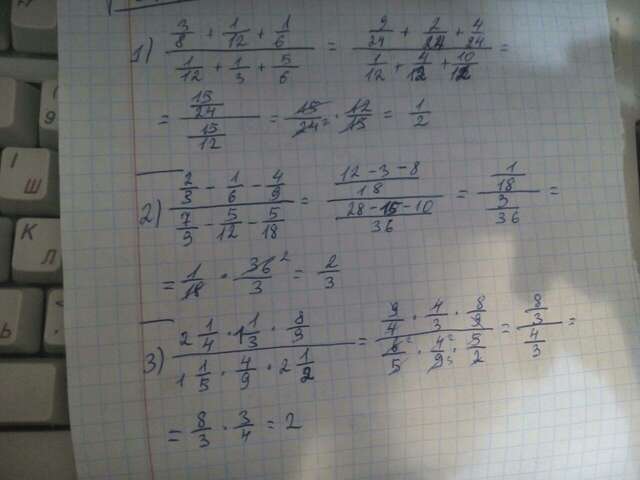 1) (3/8 + 1/12 + 1/6) / (1/12 + 1/3 + 5/6) = (9/24 + 2/24 + 4/24) / (1/12 + 4/12 + 10/12) =
= (15/24) / (15/12) = 15/24² · 12/15 = 1/2
2) (2/3 - 1/6 - 4/9) / (7/3 - 5/12 - 5/18) = ((12 - 3 - 8)/18) / ((28 - 15 - 10)/36) = (1/18) / (3/36) =
= 1/18 · 36²/3 = 2/3
3) (2 1/4 · 1 1/3 · 8/9) / (1 1/5 · 4/9 · 2 1/2) = (9/4 · 4/3 · 8/9) / (6²/5 · 4²/9₃ · 5/2) = (8/3) / (4/3) =
= 8/3 · 3/4 = 2
Ш
К
Л
9